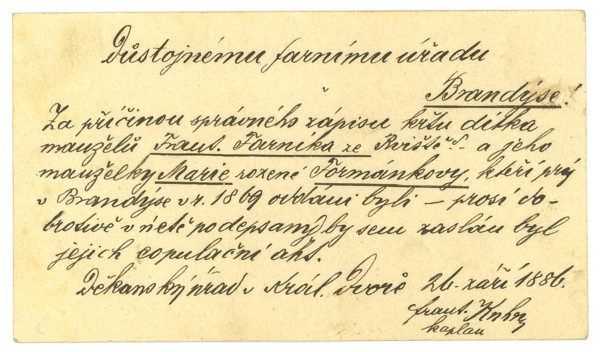 Důstojnému farnímu úřadu
Brandýse!
Za příčinou správného zápisu křtu dítka
manželů Frant. Farníka ze a jeho
manželky Marie rozené Formánkovy, kteří prý
v Brandýse v r. 1869 oddáni byli – prosí do-
brotivě v úctě podepsaný, by sem zaslán byl
jejich copulační akt.
Děkanský úřad v Král. Dvoře 26. září 1886.
frant.
kaplan